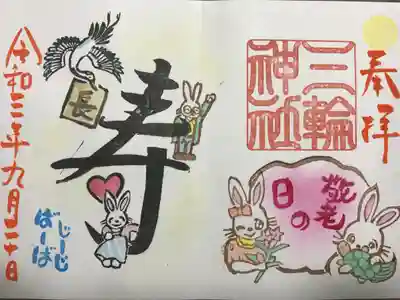 奉拝
三輪
神社
敬老
の日
長
寿
じーじ
ばーば
令和三年九月二十日